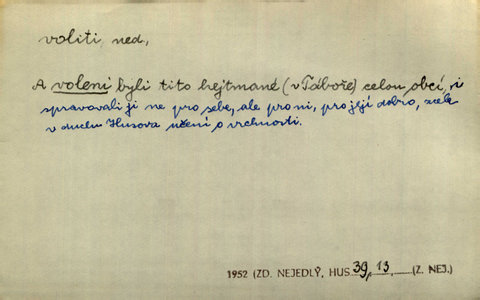 voliti, ned.
A voleni byli tito hejtmané (v Táboře) celou obcí,
spravovali ji ne pro sebe, ale pro ni, pro její dobro, zcela
v duchu Husova učení o vrchnosti.
1952 (ZD. NEJEDLÝ, HUS. 39, 13 (Z. NEJ.)